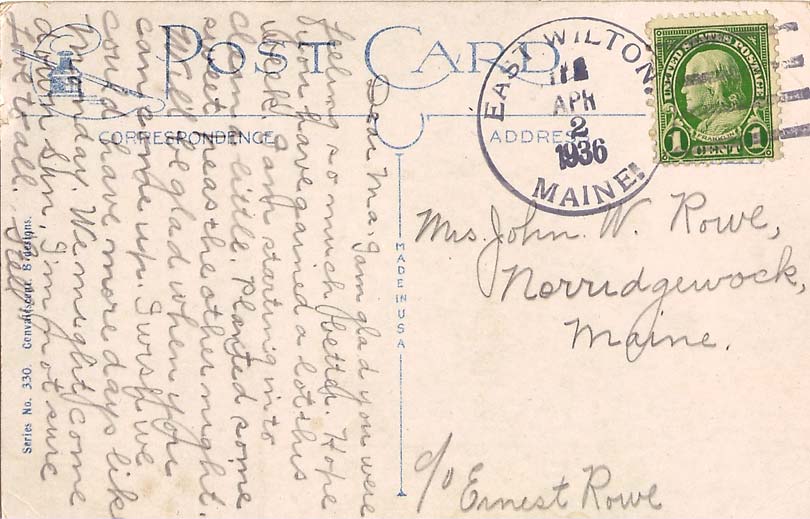 POST CARD
CORRESPONDENCE
ADDRESS
MADE IN USA
Series No. 330. Convalescent. 8 designs.
EAST WILTON
APR
2
1936
MAINE
UNITED STATES POSTAGE
FRANKLIN
1 CENT 1
Mrs. John. W. Rowe,
Norridgewock,
Maine.
c/o Ernest Rowe
Dear Ma, I am glad you were
feeling so much better. Hope
you have gained a lot this
week. I am starting in to
clean a little. Planted some
sweet peas the other night.
Will be glad when you
can come up. I wish we
could have more days like
Monday. We might come
down Sun, I'm not sure
Love to all.